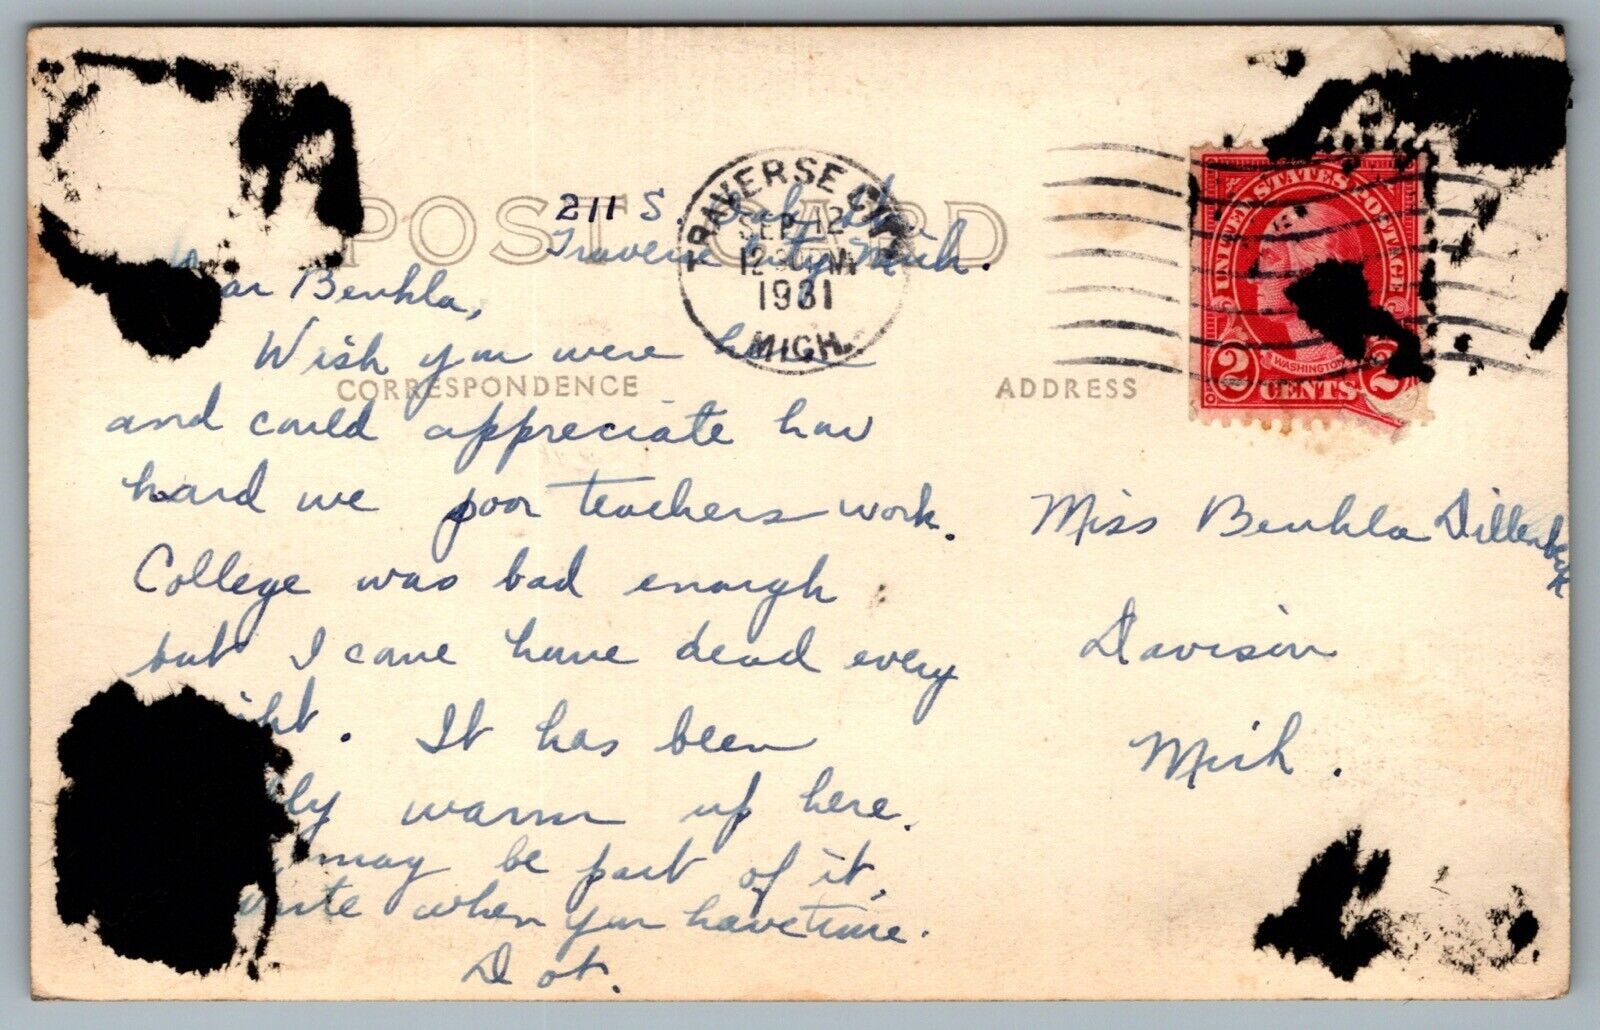 POST CARD
211 S. Oak St.
Traverse City, Mich.
TRAVERSE CITY
SEP 12
1931
MICH.
UNITED STATES POSTAGE
WASHINGTON
2 CENTS 2
ar Beuhla,
Wish you were here
CORRESPONDENCE
ADDRESS
and could appreciate how
hard we poor teachers work.
College was bad enough
but I came home dead every
ight. It has been
lly warm up here.
may be part of it.
write when you have time.
Dot.
Miss Beuhla Dillenbeck
Davison
Mich.